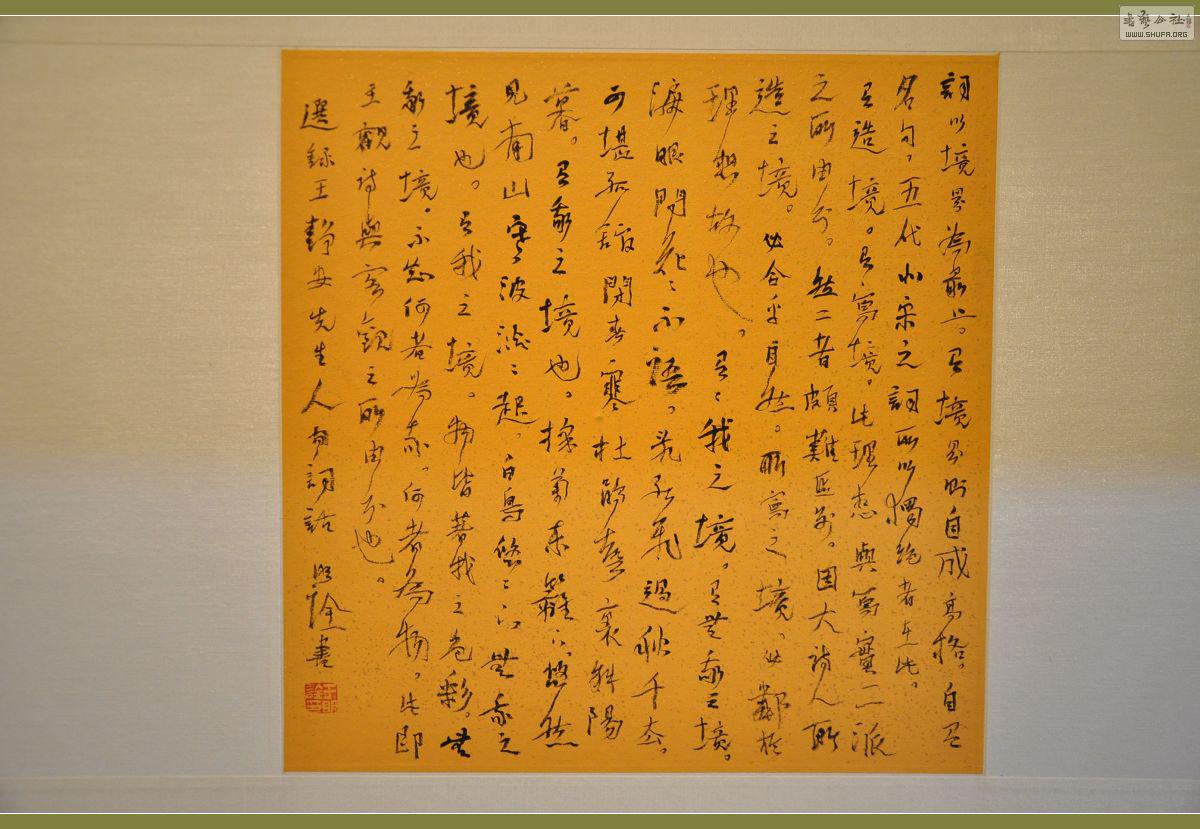 詞以境界為最上。有境界則自成高格。自有
名句。五代北宋之詞所以獨絕者在此。
有造境。有寫境。此理想與寫實二派
之所由分。然二者頗難區別。因大詩人所
造之境。必合乎自然。所寫之境。必鄰於
理想故也。有有我之境。有無我之境。
淚眼問花花不語。亂紅飛過秋千去。
可堪孤館閉春寒杜鵑聲裏斜陽
暮。有我之境也。採菊東籬下悠然
見南山寒波澹澹起。白鳥悠悠下無我之
境也。有我之境。物皆著我之色彩。無
我之境。不知何者為我。何者為物。此即
主觀詩與客觀之所由分也。
選錄王靜安先生人間詞話 書
WWW.SHUFA.ORG